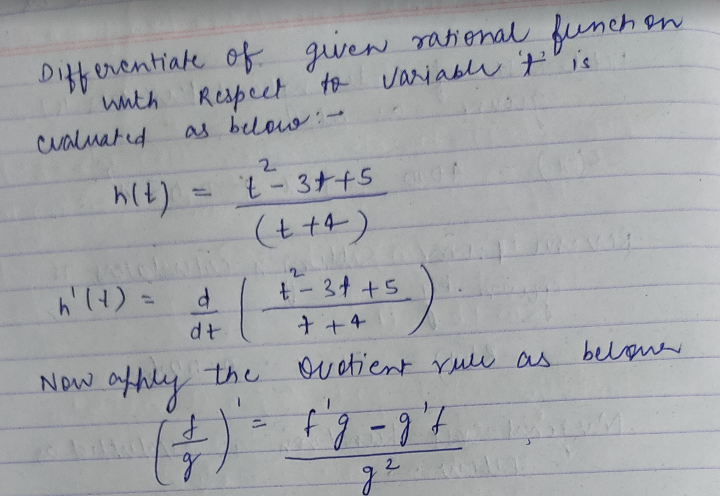 Differentiate of given rational function
with Respect to variable 't' is
evaluated as below:-
h(t) = t² - 3t + 5 / (t + 4)
h'(t) = d/dt ( t² - 3t + 5 / t + 4 ).
Now apply the Quotient rule as below
(f/g)' = f'g - g'f / g²